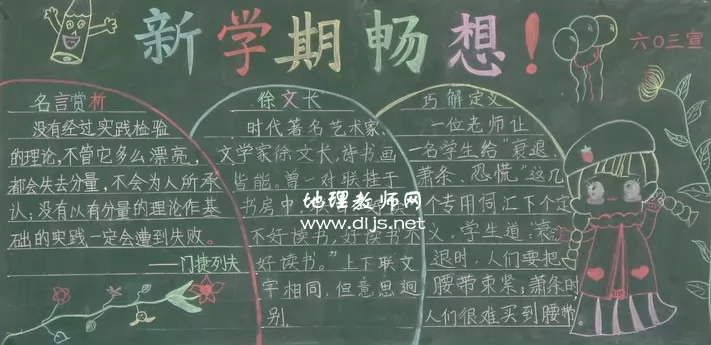 新学期畅想!
六〇三宣
名言赏析
没有经过实践检验
的理论,不管它多么漂亮,
都会失去分量,不会为人所承
认;没有以有分量的理论作基
础的实践一定会遭到失败。
——门捷列夫
徐文长
时代著名艺术家、
文学家徐文长,诗书画
皆能。曾一对联挂于
书房中,
不好读书,好读书不
好读书。"上下联文
字相同,但意思迥
别.
巧解定义
一位老师让
一名学生给"衰退、
萧条、恐慌"这几
个专用词汇下个定
义。学生道:衰
退时,人们要把
腰带束紧;萧条时,
人们很难买到腰带
地理教师网
www.dljs.net